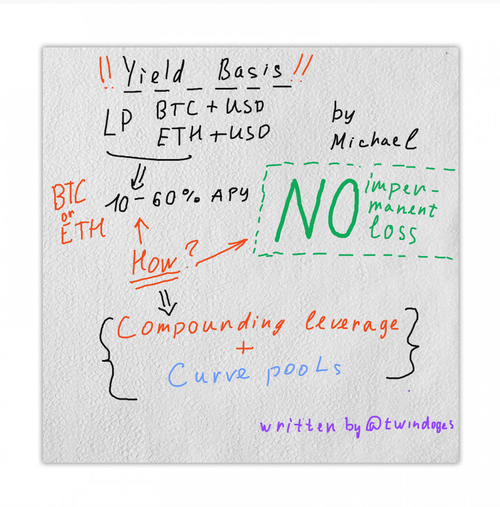 !! Yield Basis !!
LP BTC + USD
ETH + USD
by
Michael
BTC
or
ETH
10-60% APY
NO imper-
manent
loss
How?
Compounding leverage
+
Curve pools
written by @twindoges